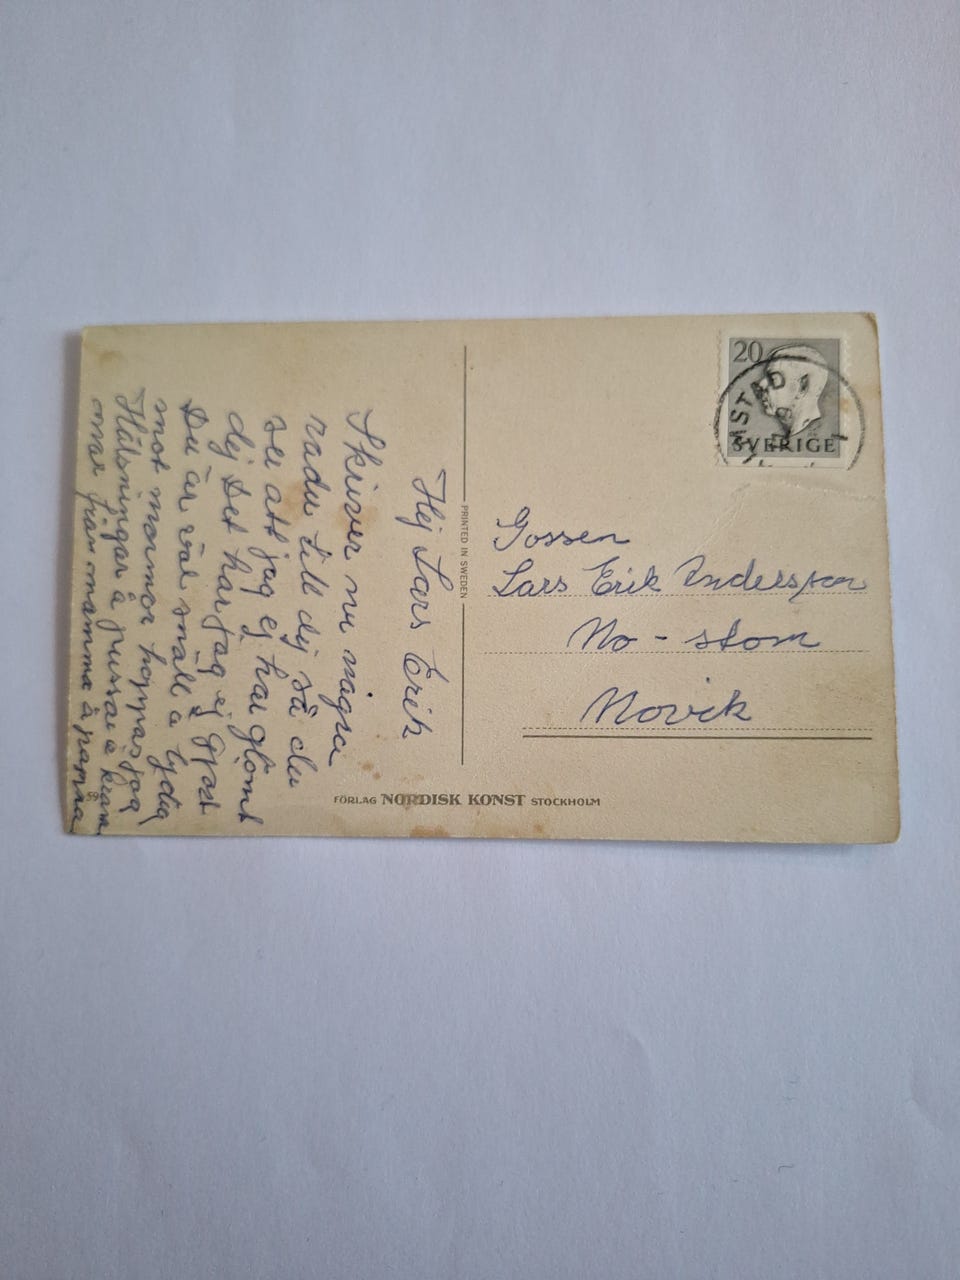 Hej Lars Erik
Skriver nu några
rader till dig så du
ser att jag ej har glömt
dig Det har jag ej gjort
Du är väl snäll å lydig
mot mormor hoppas jag
Hälsningar å pussar å kram
mar från mamma å pappa
59
PRINTED IN SWEDEN
FÖRLAG NORDISK KONST STOCKHOLM
20
SVERIGE
Gossen
Lars Erik Andersson
Mo - stom
Morvik